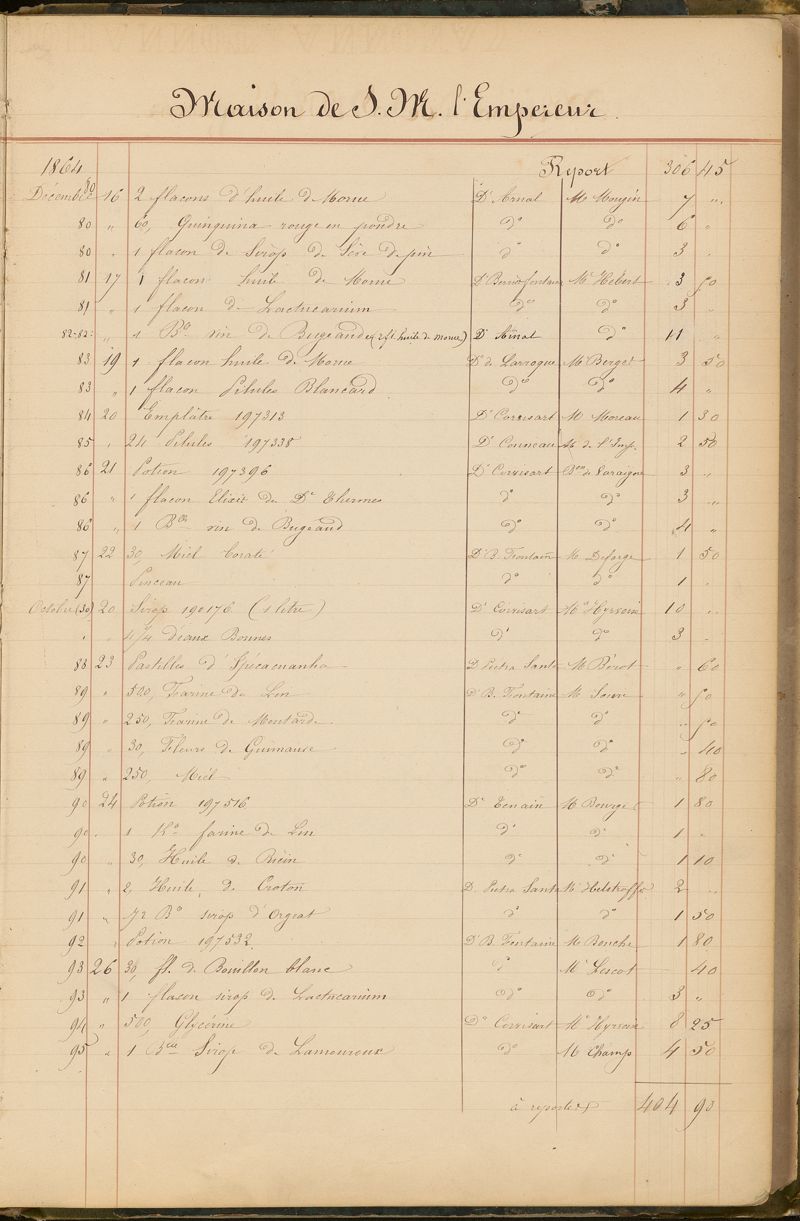 Maison de S. M. l'Empereur
1864 Report 306 45
Décembre 80 16 2 flacons d'huile de Morue Dr Arnal M. Mougin 7 "
80 " 60, Quinquina rouge en poudre do do 6 "
80 " 1 flacon de Sirop de Sève de pin do do 3 "
81 17 1 flacon huile de Morue Mr Hébert 3 50
81 " 1 flacon de Lactucarium do do 3 "
82-82 " 1 Blle vin de Bugeaud (2 fl. huile de morue) Dr Arnal do 11 "
83 19 1 flacon huile de Morue Dr de Larroque Mr Berget 3 50
83 " 1 flacon Pilules Blancard do do 4 "
84 20 Emplâtre 197313 Dr Corvisart M. Moreau 1 30
85 " 24 Pilules 197338 Dr Conneau de l'Imp. 2 50
86 21 Potion 197396 Dr Corvisart Bon de 3 "
86 " 1 flacon Elixir du Dr Thermes do do 3 "
86 " 1 Blle vin de Bugeaud do do 4 "
87 22 30, Miel boraté Dr B. Fontaine M. Deforge 1 50
87 Pinceau do do 1 "
Octobre (30) 20 Sirop 190176 (1 litre) Dr Corvisart Mr Hyrvoix 10 "
" " 4/4 d'eaux Bonnes do do 3 "
88 23 Pastilles d'Ipécacuanha Dr Pietra Santa M. Bérot " 60
89 " 500, Farine de Lin Dr B. Fontaine M. " 50
89 " 250, Farine de Moutarde do do " 50
89 " 30, Fleurs de Guimauve do do " 40
89 " 250, Miel do do " 80
90 24 Potion 197516 Dr Tenain M. Bourge 1 80
90 " 1 Ko farine de Lin do do 1 "
90 " 30, Huile de Ricin do do 1 10
91 " 2, Huile de Croton Dr Pietra Santa Mr 2 "
91 " 1/2 Blle sirop d'Orgeat do do 1 50
92 " Potion 197532 Dr B. Fontaine M. Bouche 1 80
93 26 30, fl. de Bouillon blanc do Mr Lescot 40
93 " 1 flacon sirop de Lactucarium do do 3 "
94 " 500, Glycérine Dr Corvisart Mr Hyrvoix 8 25
95 " 1 Blle Sirop de Lamouroux do M. Champ 4 50
à reporter 404 90